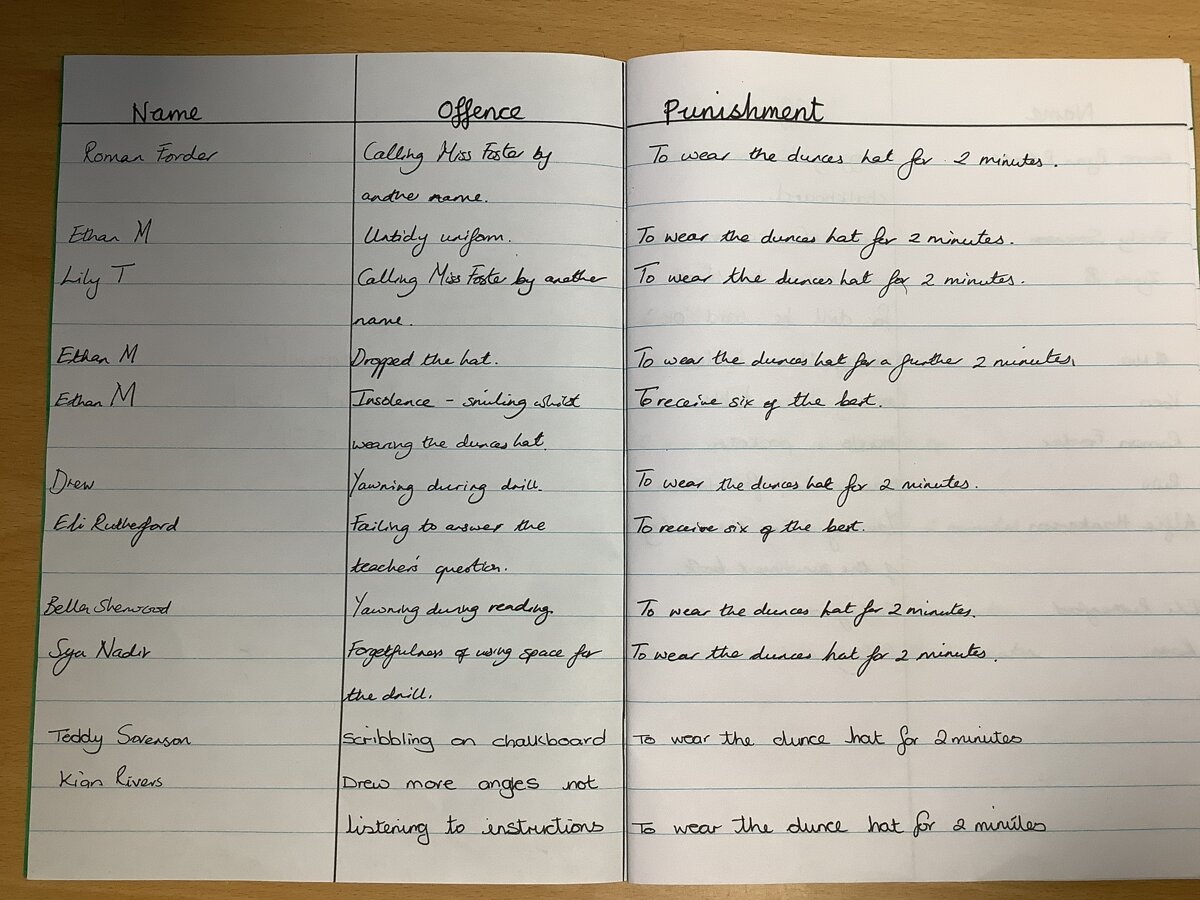 Name Offence Punishment
Roman Forder Calling Miss Foster by To wear the dunces hat for 2 minutes.
another name.
Ethan M Untidy uniform. To wear the dunces hat for 2 minutes.
Lily T Calling Miss Foster by another To wear the dunces hat for 2 minutes.
name.
Ethan M Dropped the hat. To wear the dunces hat for a further 2 minutes.
Ethan M Insolence - smiling whilst To receive six of the best.
wearing the dunces hat.
Drew Yawning during drill. To wear the dunces hat for 2 minutes.
Eli Rutherford Failing to answer the To receive six of the best.
teacher's question.
Bella Sherwood Yawning during reading. To wear the dunces hat for 2 minutes.
Sya Nadir Forgetfulness of using space for To wear the dunces hat for 2 minutes.
the drill.
Teddy Sorenson scribbling on chalkboard To wear the dunce hat for 2 minutes
Kian Rivers Drew more angles not
listening to instructions To wear the dunce hat for 2 minutes